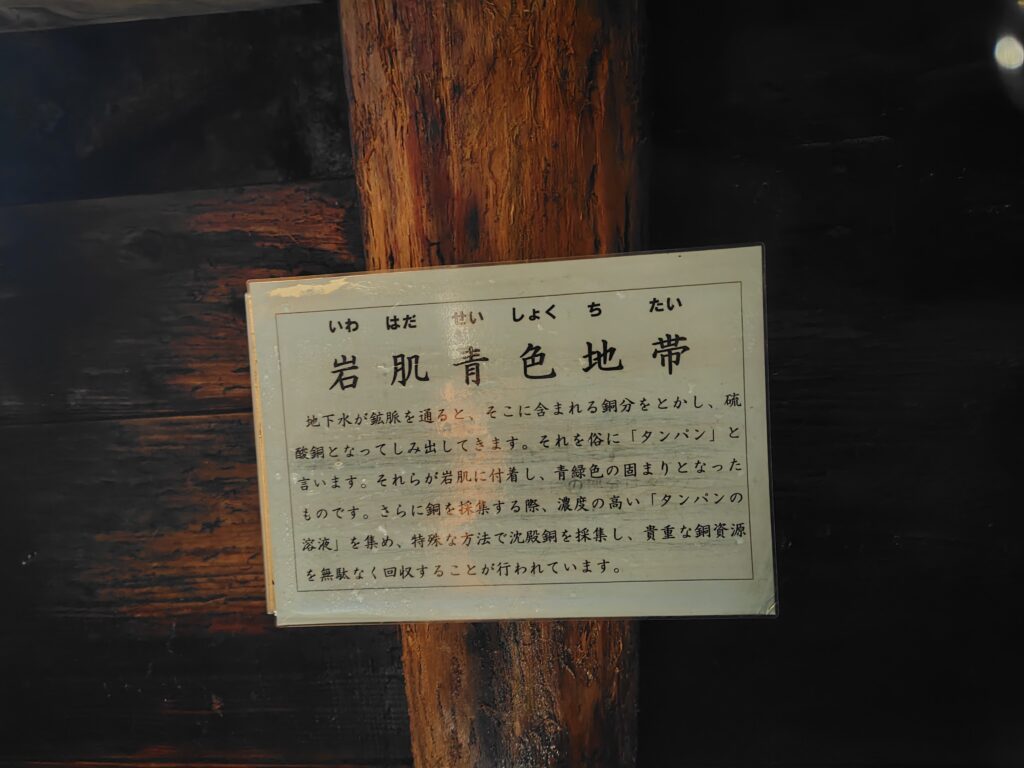 いわ はだ せい しょく ち たい
岩肌青色地帯
地下水が鉱脈を通ると、そこに含まれる銅分をとかし、硫
酸銅となってしみ出してきます。それを俗に「タンパン」と
言います。それらが岩肌に付着し、青緑色の固まりとなった
ものです。さらに銅を採集する際、濃度の高い「タンパンの
溶液」を集め、特殊な方法で沈殿銅を採集し、貴重な銅資源
を無駄なく回収することが行われています。